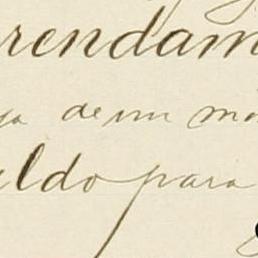 rendam
de un
ldo para